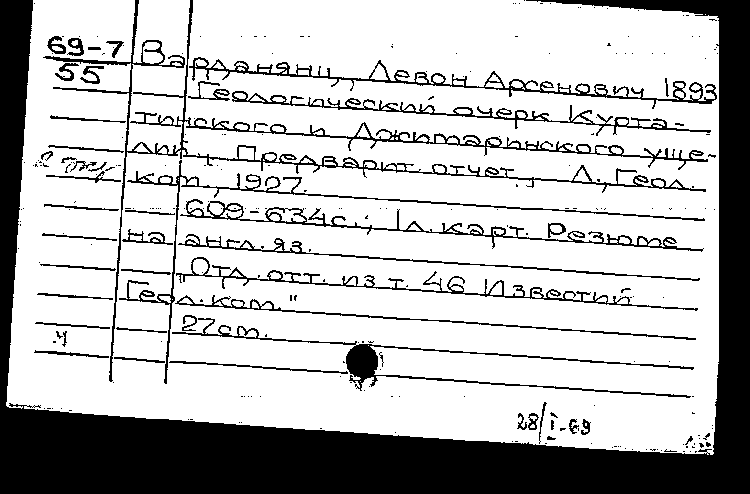 69-7
55
Варданянц, Левон Арсенович, 1893
Геологический очерк Курта-
тинского и Джимаринского уще-
лий. Предварит. отчет. Л., Геол.
ком., 1927.
609-634с.; 1л. карт. Резюме
на англ. яз.
"Отд. отт. из т. 46 Известий
Геол. ком."
27см.
28/I-69